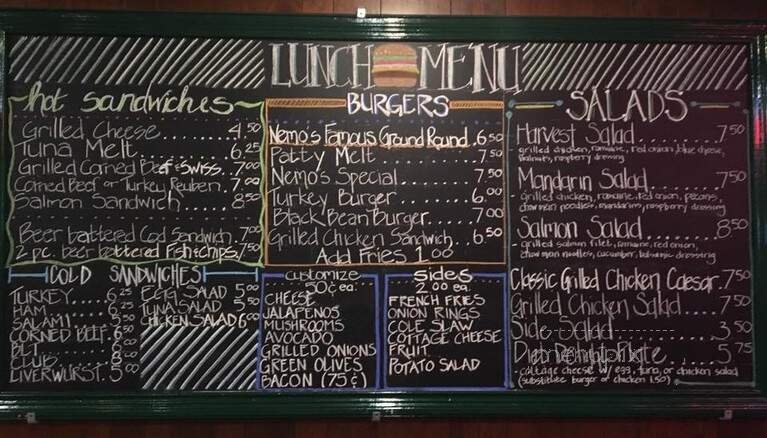 LUNCH MENU
hot sandwiches
Grilled Cheese...... 4.50
Tuna Melt...... 6.25
Grilled Corned Beef & Swiss.. 7.00
Corned Beef or Turkey Reuben. 7.00
Salmon Sandwich...... 8.50
Beer battered Cod Sandwich. 7.00
2 pc. beer battered Fish & chips. 7.50
COLD SANDWICHES
TURKEY.... 6.25
HAM
SALAMI
CORNED BEEF. 6.50
BLT
CLUB
LIVERWURST. 5.00
EGG SALAD 5.00
TUNA SALAD 5.50
CHICKEN SALAD 6.00
BURGERS
Nemo's Famous Ground Round. 6.50
Patty Melt........ 7.50
Nemo's Special...... 7.50
Turkey Burger...... 6.00
Black Bean Burger..... 7.00
Grilled Chicken Sandwich.. 6.50
Add Fries 1.00
customize
50¢ ea:
CHEESE
JALAPEÑOS
MUSHROOMS
AVOCADO
GRILLED ONIONS
GREEN OLIVES
BACON (75¢)
sides
2.00 ea:
FRENCH FRIES
ONION RINGS
COLE SLAW
COTTAGE CHEESE
FRUIT
POTATO SALAD
SALADS
Harvest Salad........ 7.50
grilled chicken, romaine, red onion, blue cheese,
walnuts, raspberry dressing
Mandarin Salad....... 7.50
grilled chicken, romaine, red onion, pecans,
chow mein noodles, mandarins, raspberry dressing
Salmon Salad....... 8.50
grilled salmon filet, romaine, red onion,
chow mein noodles, cucumber, balsamic dressing
Classic Grilled Chicken Caesar. 7.50
Grilled Chicken Salad...... 7.50
Side Salad........ 3.50
Plate..... 5.75
cottage cheese w/ egg, tuna, or chicken salad
(substitute burger or chicken 1.50)